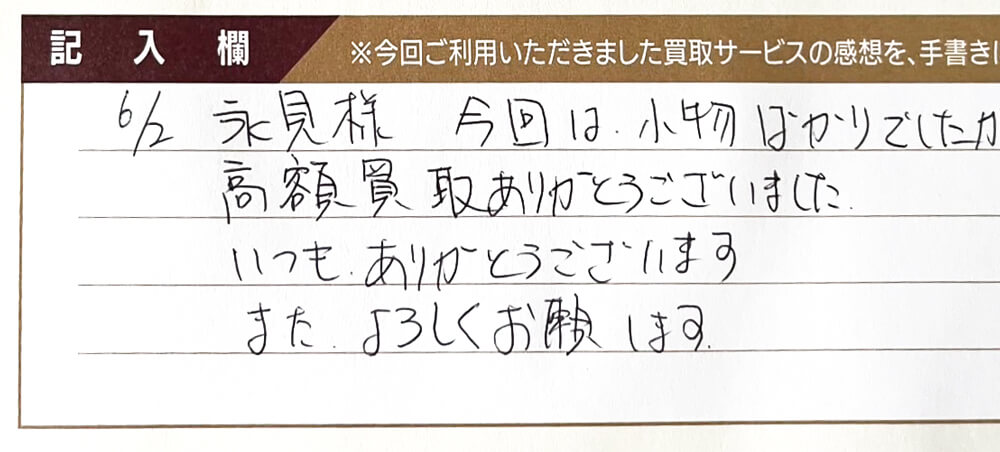 記入欄
※今回ご利用いただきました買取サービスの感想を、手書きに
6/2 永見様 今回は、小物ばかりでしたが
高額買取ありがとうございました.
いつも、ありがとうございます
また、よろしくお願します.